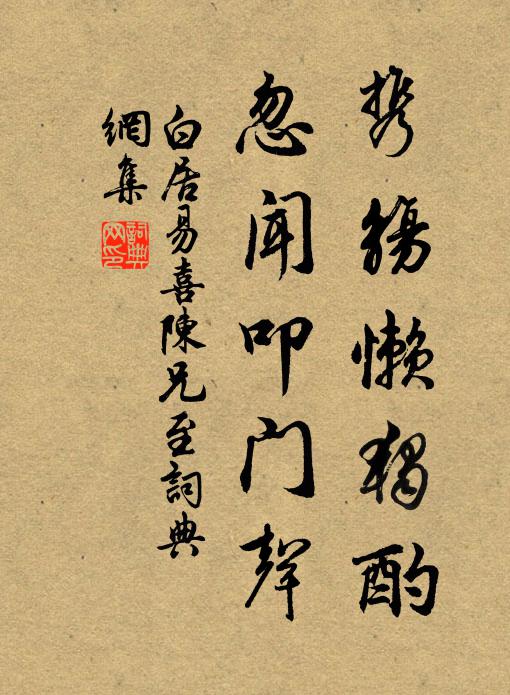 携觞懒独酌
忽闻叩门聲
白居易喜陳兄至詞典
網集
詞典網印